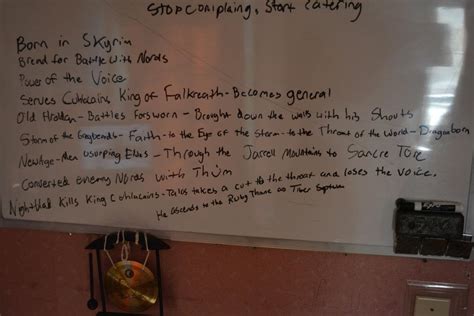 Stop complaining, start catering
Born in Skyrim
Bread for Battle with Nords
Power of the Voice
Serves Cuhlecain, King of Falkreath - Becomes general
Old Hroldan - Battles Forsworn - Brought down the walls with his Shouts
Storm of the Greybeards - Faith - to the Eye of the storm - to the Throat of the World - Dragonborn
New Age - Men usurping Elves - Through the Jarrell Mountains to Sancre Tor
- Converted enemy Nords with Thu'm
Nightblad Kills King Cuhlacains - Talos takes a cut to the throat and loses the voice.
He ascends to the Ruby Throne as Tiber Septum